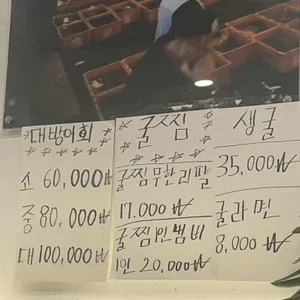 대방어회
소 60,000₩
중 80,000₩
대 100,000₩
굴찜
굴찜무한리필
17.000₩
굴찜1인냄비
1인 20,000₩
생굴
35,000₩
굴라면
8,000₩